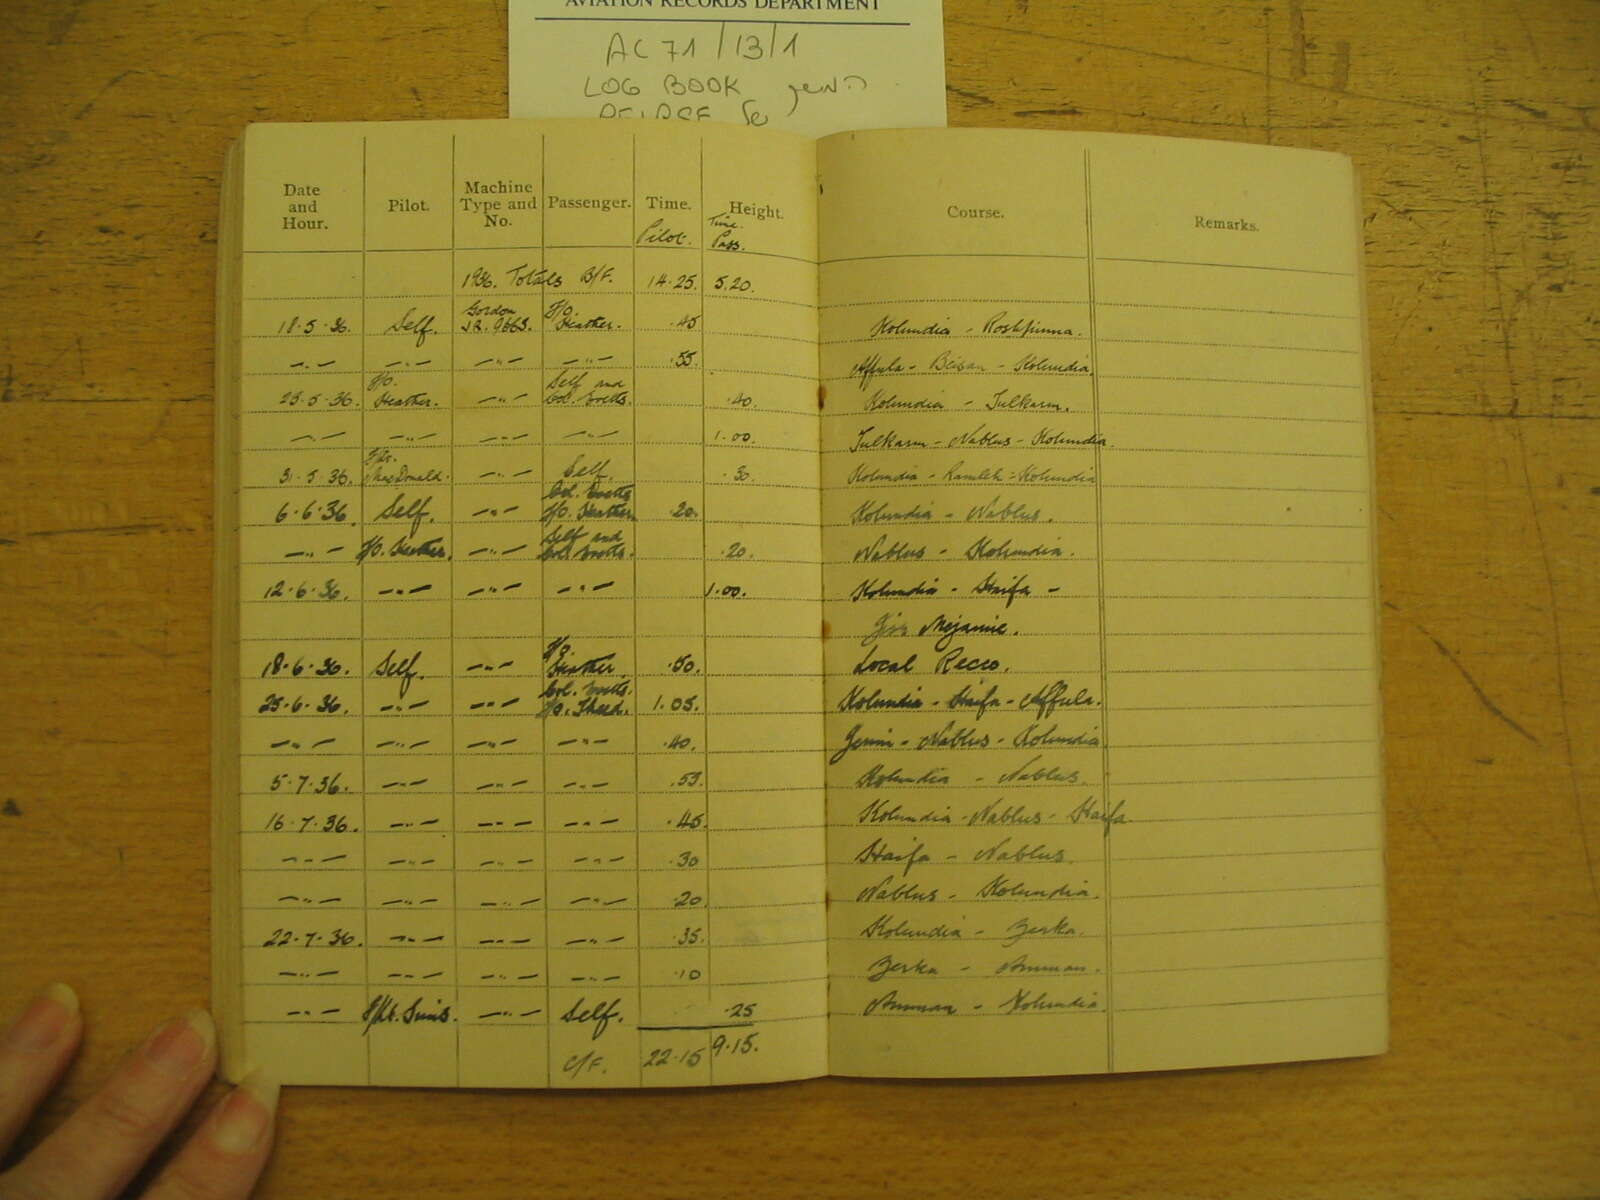 AVIATION RECORDS DEPARTMENT
AC 71/13/1
LOG BOOK
Date and Hour. Pilot. Machine Type and No. Passenger. Time. Height. Course. Remarks.
Pilot. Time. Pass.
1936. Totals B/F. 14.25 5.20.
18.5.36. Self. Gordon J.R. 9663. F/O. Heather. .45 Kolundia - Roshpinna.
—"— —"— —"— .55. Affula - Beisan - Kolundia.
25.5.36. F/O. Heather. —"— Self and Col. .40. Kolundia - Tulkarm.
—"— —"— —"— —"— 1.00. Tulkarm - Nablus - Kolundia.
31.5.36. MacDonald. —"— Self. .30. Kolundia - Ramleh - Kolundia
6.6.36. Self. —"— Col. F/O. Heather. .20. Kolundia - Nablus.
—"— F/O. Heather. —"— Self and Col. .20. Nablus - Kolundia.
12.6.36. —"— —"— —"— 1.00. Kolundia - Haifa -
Jisr Mejamie.
18.6.36. Self. —"— F/O. Heather. .50. Local Recco.
25.6.36. —"— —"— Col. F/O. 1.05. Kolundia - Haifa - Affula.
—"— —"— —"— —"— .40. Jenin - Nablus - Kolundia.
5.7.36. —"— —"— —"— .55. Kolundia - Nablus.
16.7.36. —"— —"— —"— .45. Kolundia - Nablus - Haifa.
—"— —"— —"— —"— .30 Haifa - Nablus.
—"— —"— —"— —"— .20. Nablus - Kolundia.
22.7.36. —"— —"— —"— .35. Kolundia - Zerka.
—"— —"— —"— —"— .10 Zerka - Amman.
—"— F/Lt. Sims. —"— Self. .25 Amman - Kolundia.
C/F. 22.15 9.15.